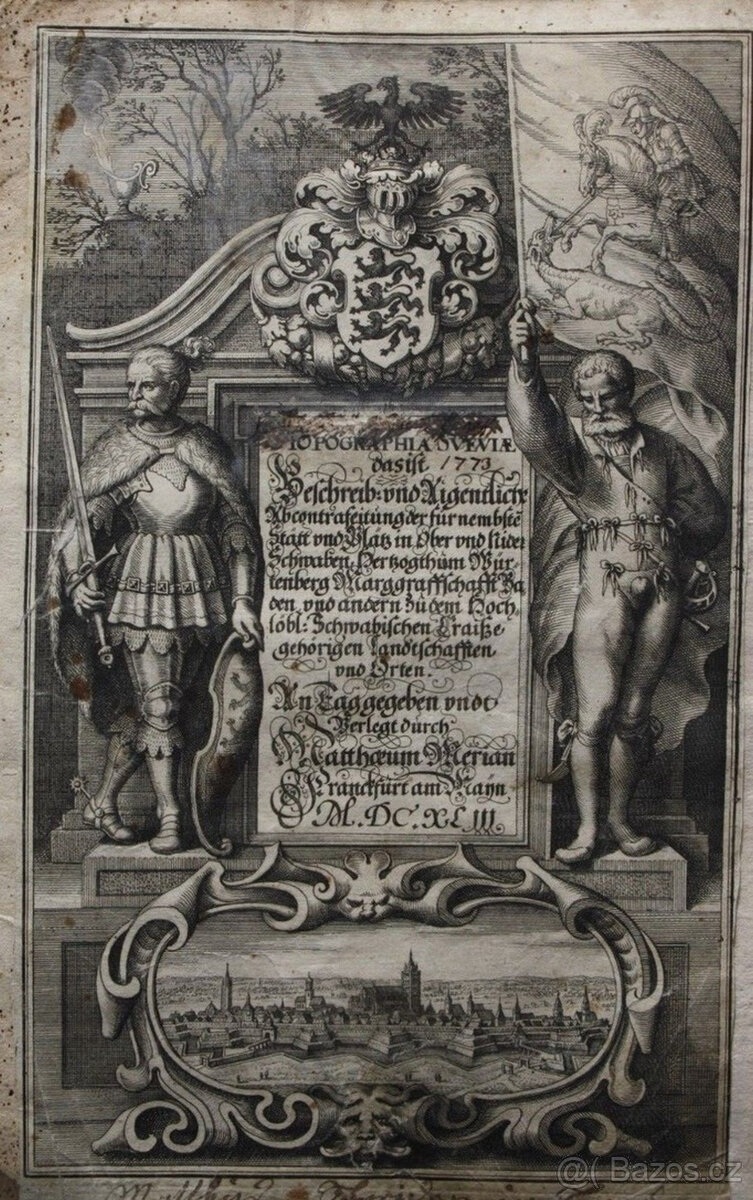 TOPOGRAPHIA SVEVIÆ
das ist 1773
Beschreib: vnd Aigentliche
Abcontrafeitung der fürnembstē
Stätt vnd Plätz in Ober vnd Nider
Schwaben, Hertzogthum Würs
tenberg Marggraffschafft Ba
den vnd andern zu dem Hoch
löbl: Schwabischen Craiße
gehörigen Landtschafften
vnd Orten.
An Tag gegeben vndt
Verlegt durch
Matthæum Merian
Franckfurt am Mayn
M. DC. XLIII
@( Bazos.cz